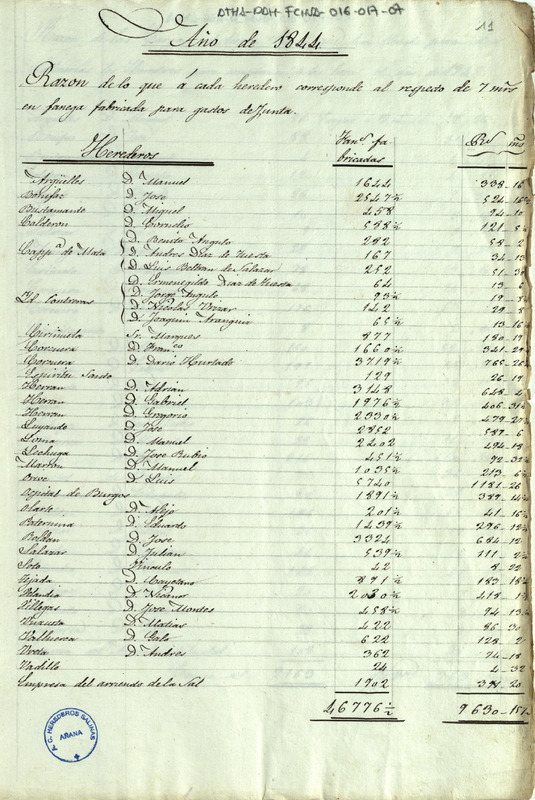 ATHA-DAH-FCHSA-016-017-07
11
Año de 1844
Razon de lo que á cada heredero corresponde al respecto de 7 mrs
en fanega fabricada para gastos de Junta.
Herederos Fans. fabricadas Rs mrs
Argüelles D. Manuel 1644 338-16
Bonifaz D. Jose 2547½ 524-16½
Bustamante D. Miguel 458 94-10
Calderon D. Cornelio 588½ 121-5½
D. Benita Angulo 282 58-2
Capp.ª de Mata D. Andres Diaz de Yuesta 167 34-13
D. Luis Beltran de Salazar 252 51-30
D. Ermenegilda Diaz de Yuesta 64 13-6
D. Jorge Angulo 93½ 19-8
Yd. Contreras D. Nicolas 142 29-8
D. Joaquin Aranguiz 65½ 13-16½
Ciriñuela Sr. Marques 877 180-19
Corcuera D. Franco 1660½ 341-29
Corcuera D. Dario Hurtado 3719½ 765-26
Espiritu Santo 129 26-19
Herran D. Adrian 3148 648-4
Herran D. Gabriel 1976½ 406-31½
Herran D. Gregorio 2330½ 479-27½
Luyando D. Jose 2852 587-6
Loma D. Manuel 2402 494-18
Lechuga D. Jose Rubio 451½ 92-32½
Martin D. Manuel 1035½ 213-6½
Orive D. Luis 5740 1181-26
ospital de Burgos 1891½ 389-14½
olarte D. Alejo 201½ 41-16½
Paternina D. Eduardo 1439½ 296-12½
Roldan D. Jose 3324 684-12
Salazar D. Julian 539½ 111-2½
Soto Vinculo 42 8-22
Tejada D. Cayetano 891½ 183-18½
Velandia D. Nicanor 2030½ 418-1½
Villegas D. Jose Montes 458½ 94-13½
D. Matias 422 86-30
Valluerca D. Galo 622 128-2
D. Andres 362 74-18
Vadillo 24 4-32
Empresa del arriendo de la Sal 1902 391-20
46776½ 9630-15½
A. C. HEREDEROS SALINAS
AÑANA